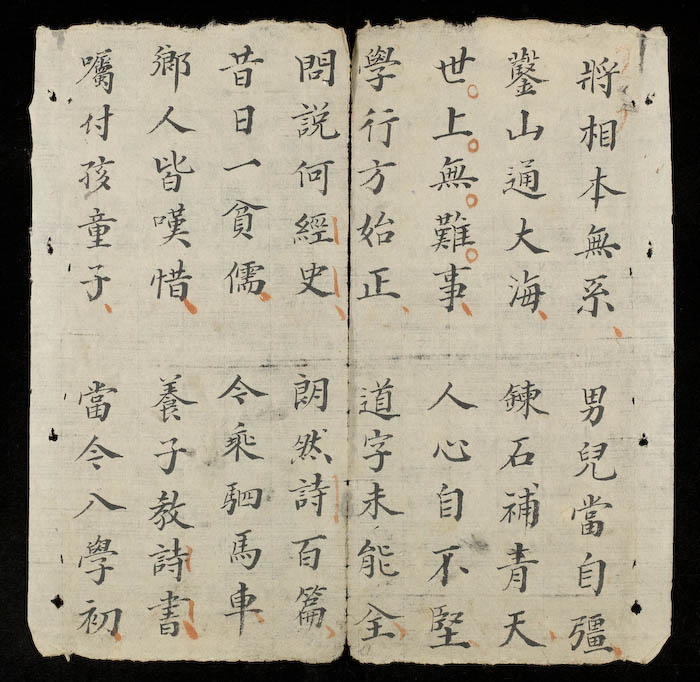 將相本無系男兒當自彊
鑿山通大海鍊石補青天
世上無難事人心自不堅
學行方始正道字未能全
問說何經史朗然詩百篇
昔日一貧儒今乘駟馬車
鄉人皆嘆惜養子教詩書
囑付孩童子當今八學初